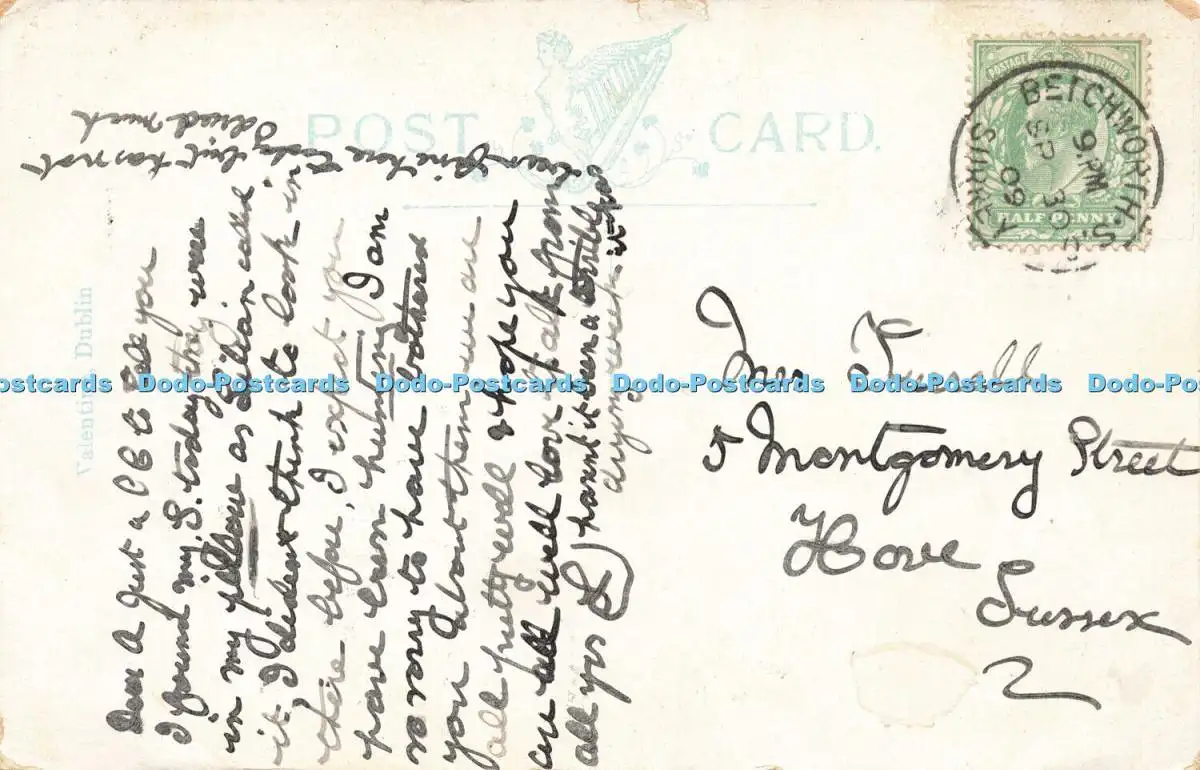 POST CARD.
Valentine Dublin
POSTAGE REVENUE
HALF PENNY
BETCHWORTH. S.O.
9 PM
SP 30
09
SURREY
Dear A Just a PC to tell you
I found my S. today they were
in my pillow as Lilian called
it. I dident think to look in
there before, I expect you
have been hunting I am
so sorry to have bothered
you about them we are
all pretty well & hope you
are all well love to all from
all yrs L) harnt it been a
drying week
fine here today but has not
dried much
Mrs Tussell
5 Montgomery Street
Hove
Sussex
Dodo-Postcards Dodo-Postcards Dodo-Postcards Dodo-Postcards Dodo-Postcards Dodo-Postcards